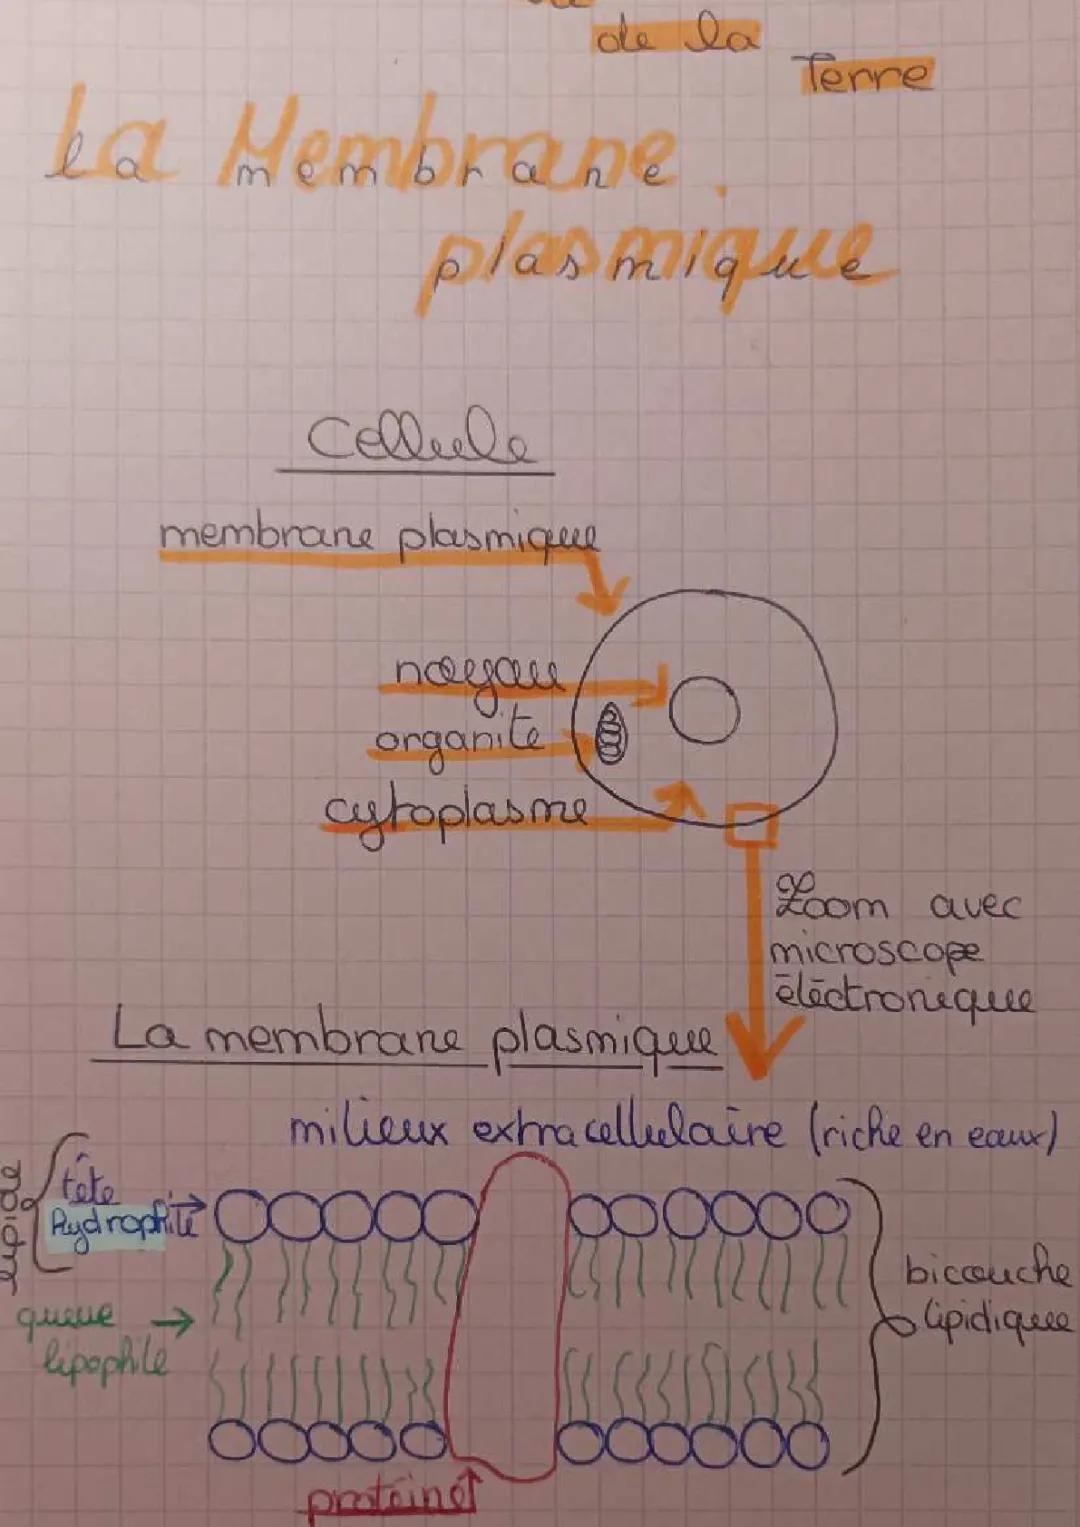 de la
Terre
La Membrane
la membrane
plasmique
plasmique
Cellule
membrane plasmique
noyau
organite
cytoplasme
Zoom avec
microscope
éléctronique
La membrane plasmique
milieux extracellulaire (riche en eaux)
lipide
tête
hydrophile
queue
lipophile
bicouche
lipidique
protéines